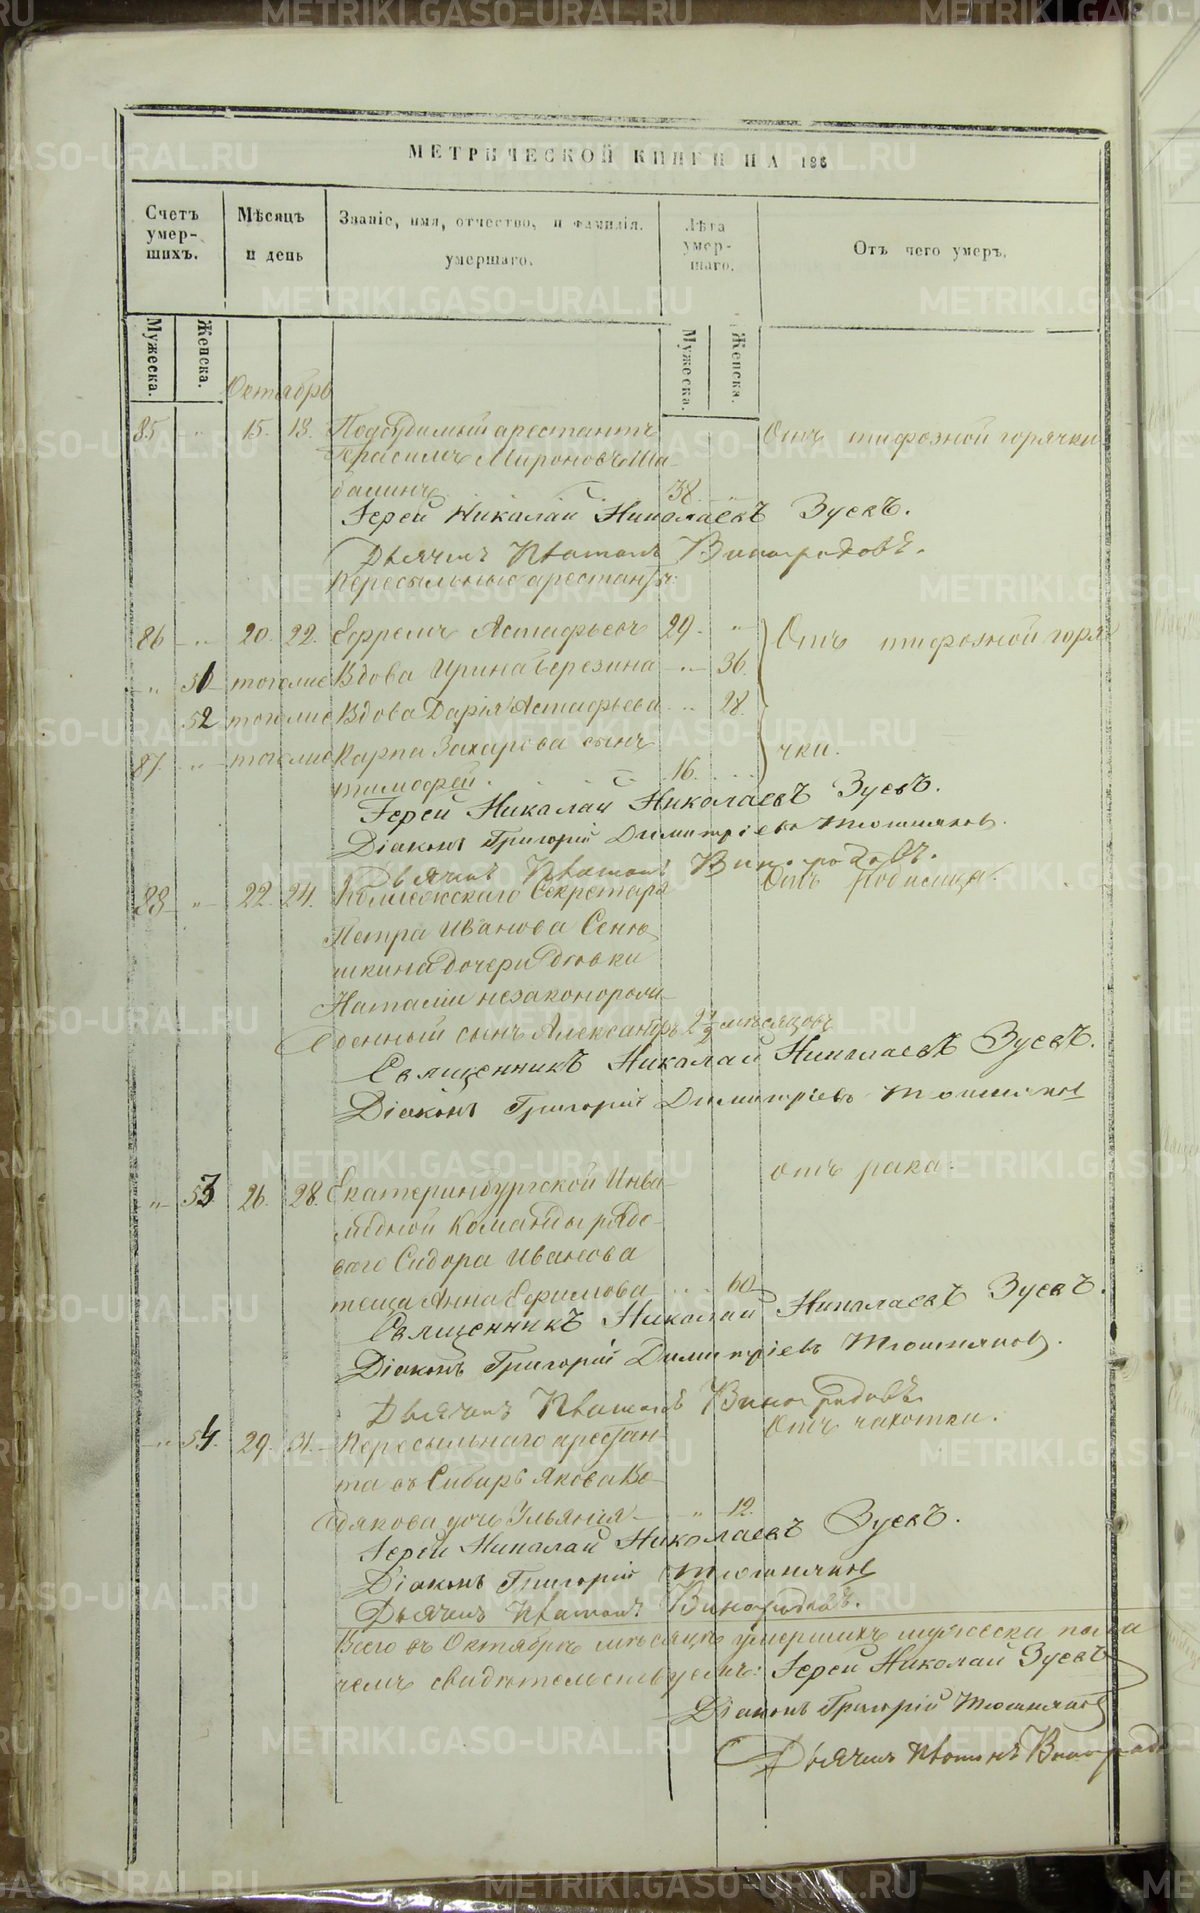 МЕТРИЧЕСКОЙ КНИГИ НА 186
Счетъ умер-шихъ.
Мѣсяцъ и день
Званіе, имя, отчество, и фамилія. умершаго.
Лѣта умер-шаго.
Отъ чего умеръ.
Мужеска.
Женска.
Мужеска.
Женска.
Октябрь
85 " 15. 18. Подсудимый арестантъ Отъ тифозной горячки
Герасимъ Мироновъ Ша-
балинъ 38.
Іерей Николай Николаевъ Зуевъ.
Дьячекъ Платонъ Виноградовъ.
Пересыльные арестанты:
86 " 20. 22. Ефремъ Астафьевъ 29. " Отъ тифозной горя
" 51 тогоже Вдова Ирина Березина " 36.
52 тогоже Вдова Дарія Астафьева " 28.
87. " тогоже Карпа Захарова сынъ чки.
Тимофей. 16.
Іерей Николай Николаевъ Зуевъ.
Діаконъ Григорій Димитріевъ Тюшняковъ.
Дьячекъ Платонъ Виноградовъ.
88 " 22. 24. Коллежскаго Секретаря Отъ родимца.
Петра Иванова Сеню
шкина дочери девки
Наталіи незаконорож-
денный сынъ Александръ 2 1/2 мѣсяцовъ
Священникъ Николай Николаевъ Зуевъ.
Діаконъ Григорій Димитріевъ Тюшняковъ
" 53 26. 28. Екатеринбургской Инва- отъ рака.
лидной команды рядо-
ваго Сидора Иванова
теща Анна Ефимова 60
Священникъ Николай Николаевъ Зуевъ.
Діаконъ Григорій Димитріевъ Тюшняковъ.
Дьячекъ Платонъ Виноградовъ
" 54. 29. 31. Пересыльнаго арестан- Отъ чахотки.
та въ Сибирь Якова
дочь Ульянія " 12.
Іерей Николай Николаевъ Зуевъ.
Діаконъ Григорій Тюшняковъ
Дьячекъ Платонъ Виноградовъ.
Всего въ Октябрѣ мѣсяцѣ умершихъ мужеска пола
чемъ свидѣтельствуемъ: Іерей Николай Зуевъ
Діаконъ Григорій Тюшняковъ
Дьячекъ Платонъ Виноградо
METRIKI.GASO-URAL.RU